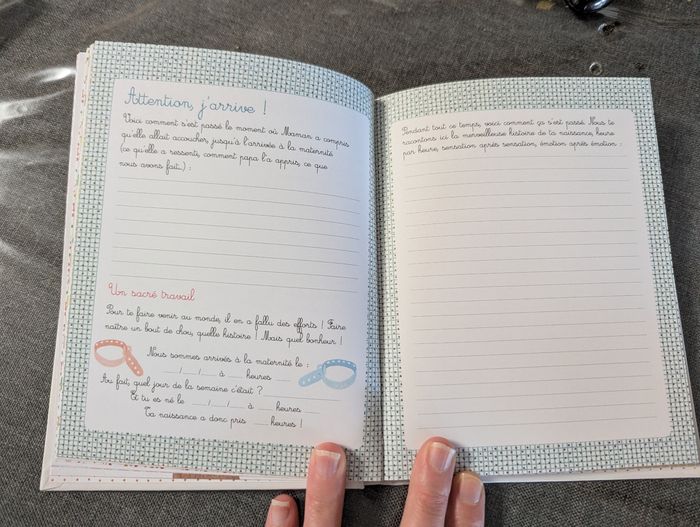 Attention, j'arrive !
Voici comment s'est passé le moment où Maman a compris
qu'elle allait accoucher, jusqu'à l'arrivée à la maternité
(ce qu'elle a ressenti, comment papa l'a appris, ce que
nous avons fait...) :
Un sacré travail
Pour te faire venir au monde, il en a fallu des efforts ! Faire
naître un bout de chou, quelle histoire ! Mais quel bonheur !
Nous sommes arrivés à la maternité le :
__/__/__ à __ heures __
Au fait, quel jour de la semaine c'était ?
Et tu es né le __/__/__ à __ heures __
Ta naissance a donc pris __ heures !
Pendant tout ce temps, voici comment ça s'est passé. Nous te
racontons ici la merveilleuse histoire de ta naissance, heure
par heure, sensation après sensation, émotion après émotion :